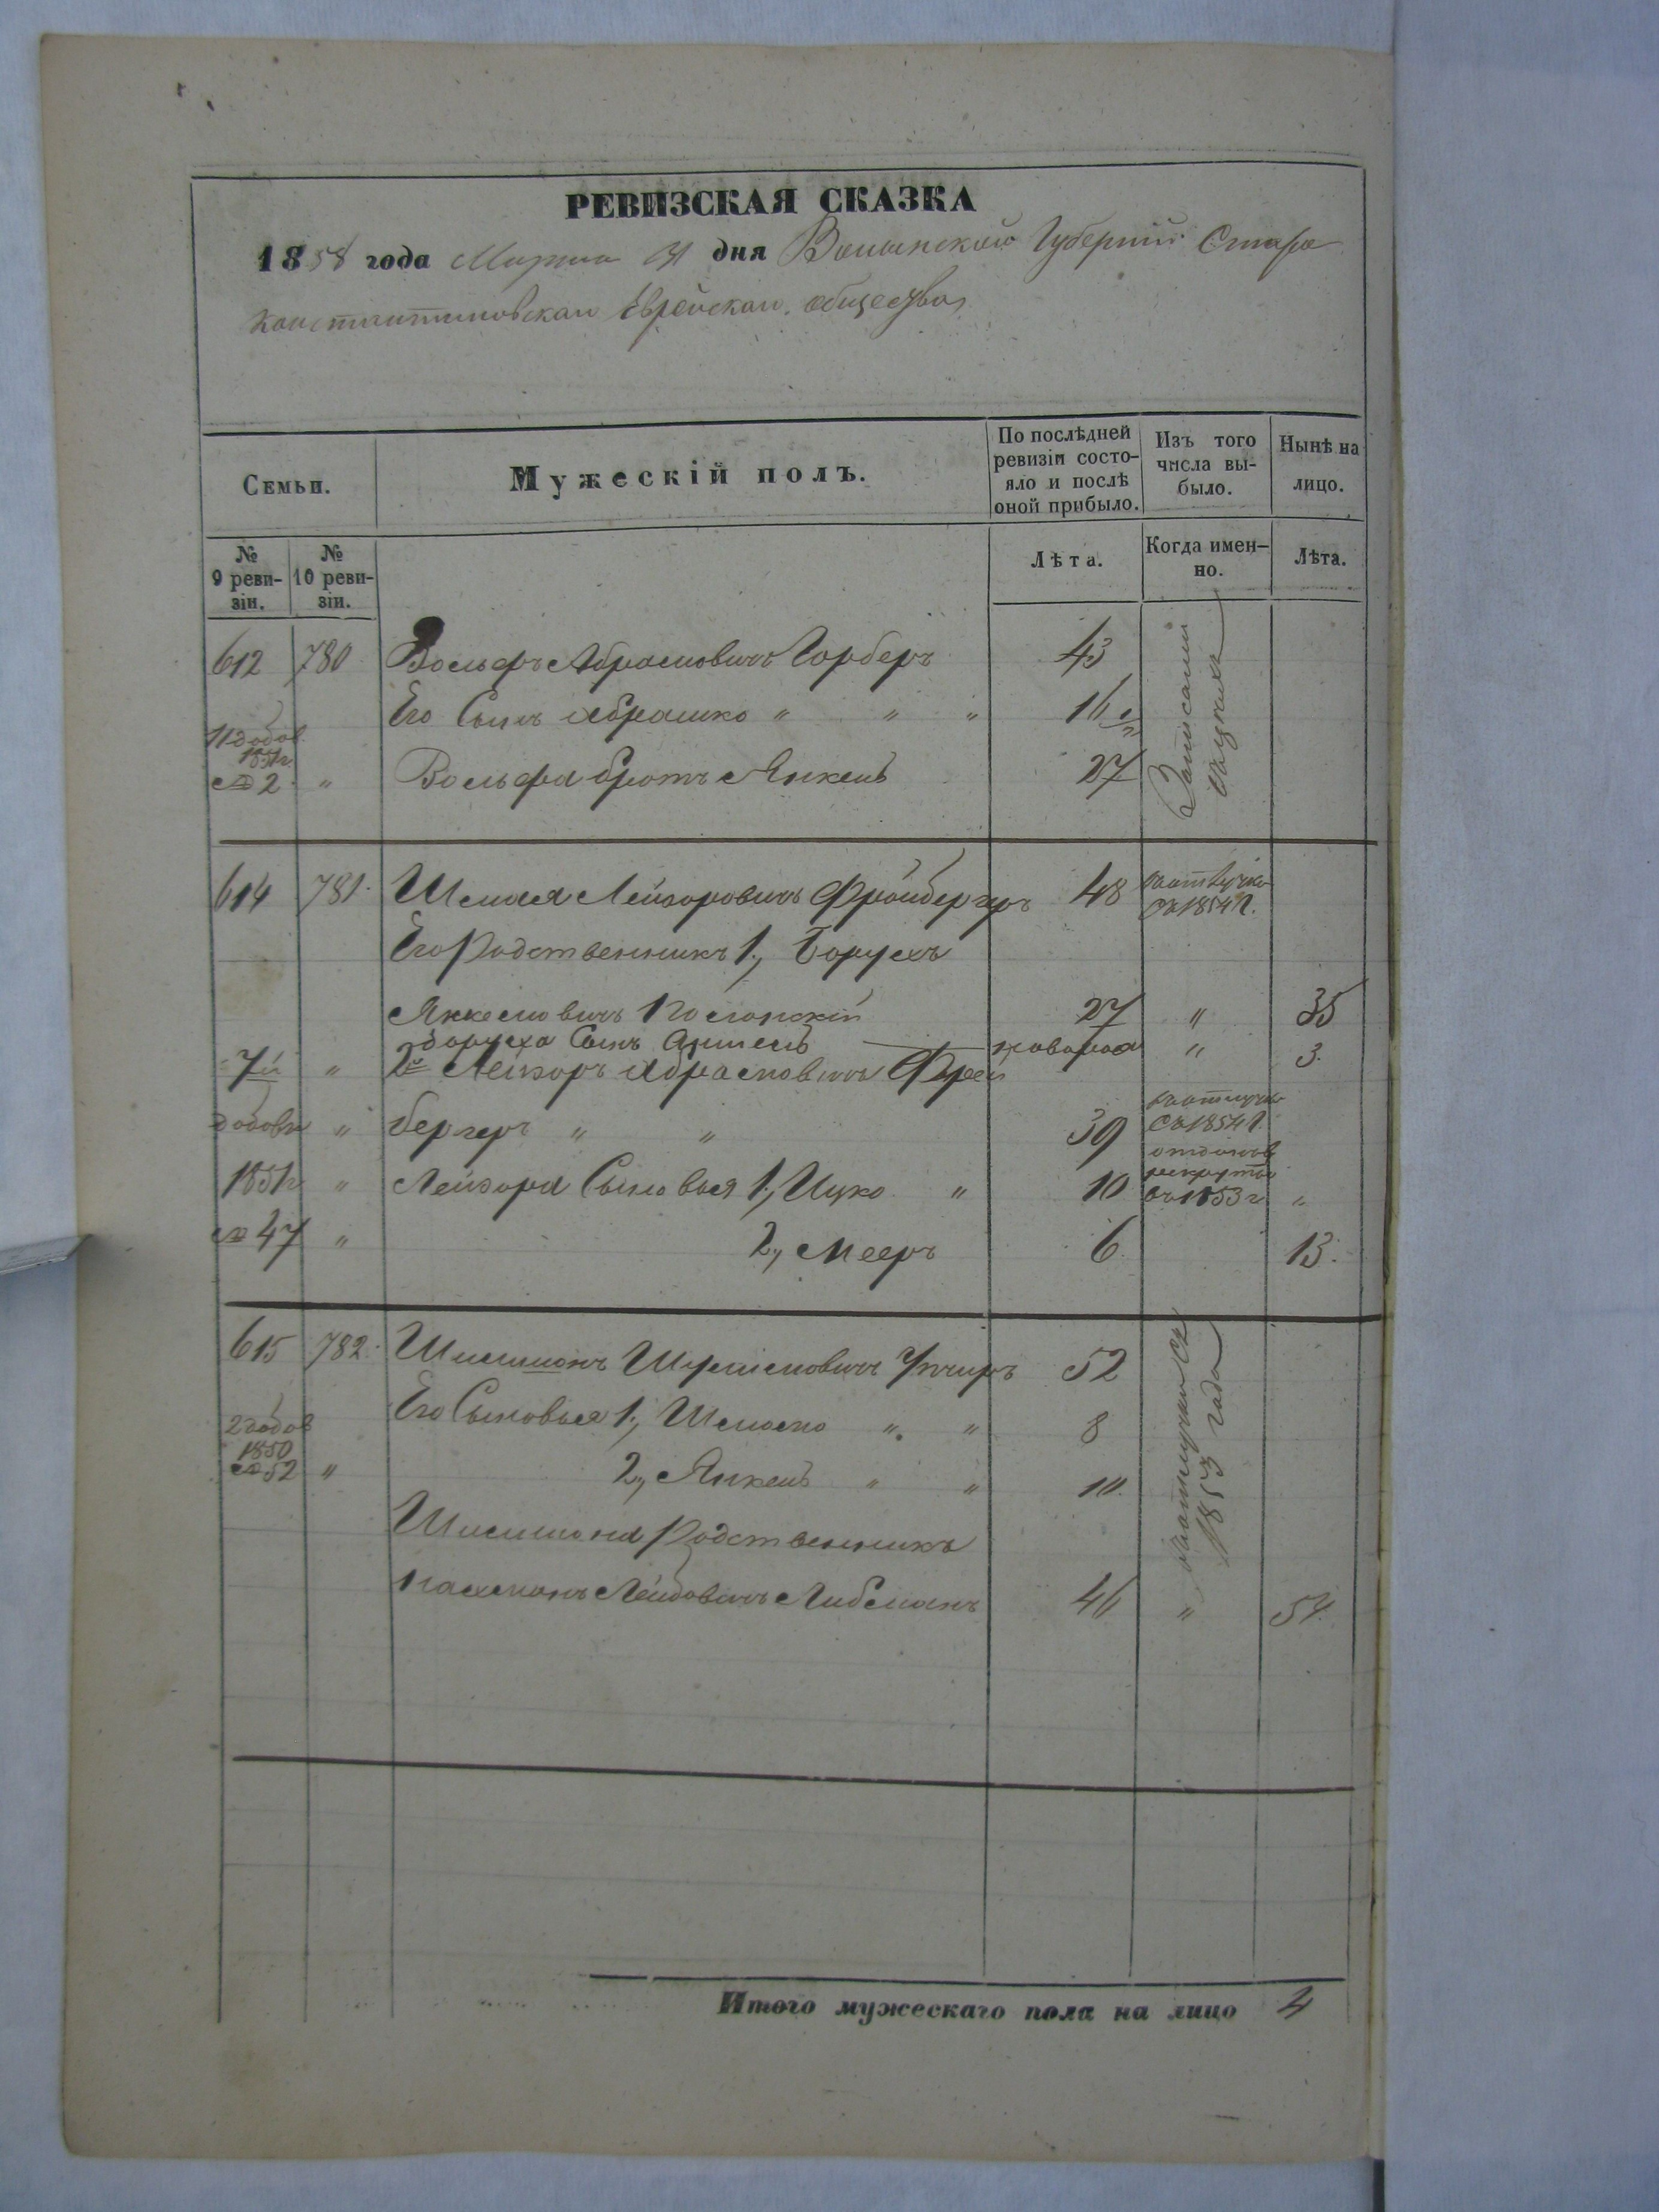 РЕВИЗСКАЯ СКАЗКА
1858 года Марта 31 дня Волынской Губерніи Старо
константиновскаго Еврейскаго общества
Семьи.
Мужескій полъ.
По послѣдней ревизіи состо-
яло и послѣ
оной прибыло.
Изъ того
числа вы-
было.
Нынѣ на
лицо.
№
9 реви-
зіи.
№
10 реви-
зіи.
Лѣта.
Когда имен-
но.
Лѣта.
612 780 Вольфъ Абрамовичъ Гарберъ 43
Его Сынъ Абрашко " " " 16
11 добов.
1851г.
№ 2 " Вольфа братъ Янкель 27
614 781. Шмая Лейзоровичъ Фрайбергеръ 48
съ 1854 г.
Его Родственникъ 1., Борухъ
Янкелевичъ 27 " 35
Боруха Сынъ " 3.
7й " 2й Лейзоръ Абрамовичъ Фрай
добовк " бергеръ " " 39
съ 1854 г.
1851г " Лейзора Сыновья 1., Ицко " 10
въ 1853 г. "
№ 47 " 2., Мееръ 6. 13.
615 782. Шимшонъ 52
2 добов
1850
№ 52 "
Его Сыновья 1., " " 8
2., Янкель " "
1853 года
Шимшона Родственникъ
Нахманъ Лейбовичъ Либманъ 46 " 54.
Итого мужескаго пола на лицо 4